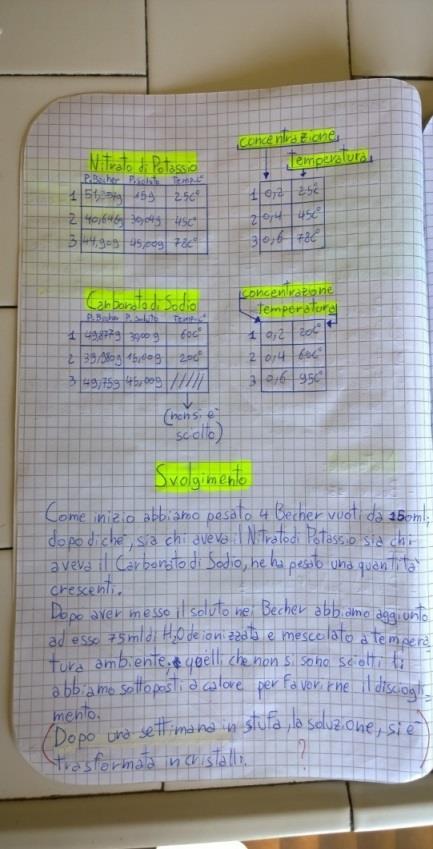 Nitrato di Potassio
P. Becher P. soluto Temp. C°
1 15g 25C°
2 40,646g 30,04g 45C°
3 44,90g 45,00g 78C°
concentrazione
Temperatura
1 0,2 25C°
2 0,4 45C°
3 0,6 78C°
Carbonato di Sodio
P. Becher P. Soluto Temp. C°
1 49,877g 30,00g 60C°
2 39,980g 15,00g 20C°
3 49,75g 45,00g /////
(non si è
sciolto)
concentrazione
Temperatura
1 0,2 20C°
2 0,4 60C°
3 0,6 95C°
Svolgimento
Come inizio abbiamo pesato 4 Becher vuoti da 150ml;
dopo di che, sia chi aveva il Nitrato di Potassio sia chi
aveva il Carbonato di Sodio, ne ha pesato una quantità
crescenti.
Dopo aver messo il soluto nei Becher abbiamo aggiunto
ad esso 75ml di H2O deionizzata e mescolato a tempera
tura ambiente, quelli che non si sono sciolti li
abbiamo sottoposti a calore per favorirne il disciogli-
mento.
(Dopo una settimana in stufa, la soluzione, si è
trasformata in cristalli. ?)